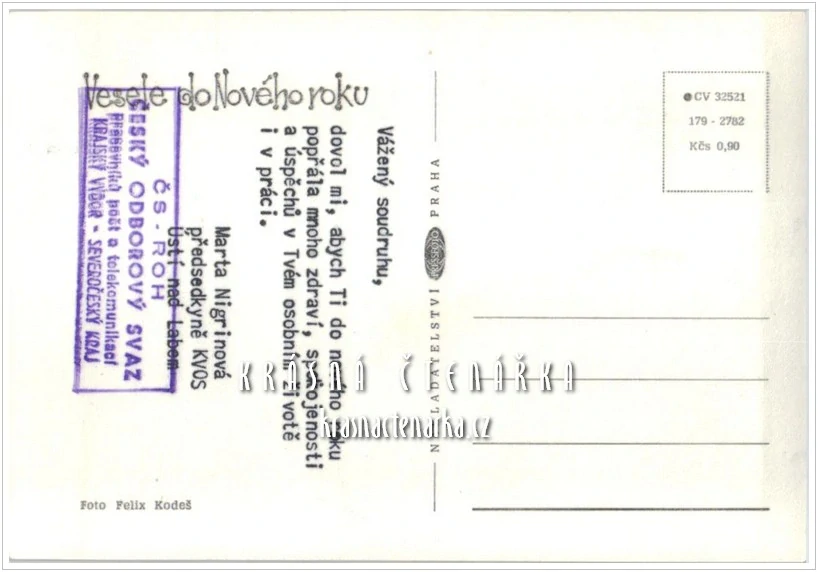 Vesele do Nového roku
Vážený soudruhu,
dovol mi, abych Ti do nového roku
popřála mnoho zdraví, spokojenosti
a úspěchů v Tvém osobním životě
i v práci.
Marta Nigrinová
předsedkyně KVOS
Ústí nad Labem
ČS - ROH
ČESKÝ ODBOROVÝ SVAZ
pracovníků pošt a telekomunikací
KRAJSKÝ VÝBOR - SEVEROČESKÝ KRAJ
Foto Felix Kodeš
NAKLADATELSTVÍ PRAHA
CV 32521
179 - 2782
Kčs 0,90
KRÁSNÁ ČTENÁŘKA
krasnactenarka.cz